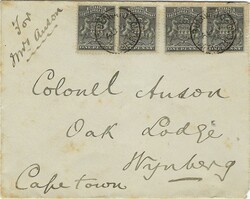 For
Mrs Anson
Colonel Anson
Oak Lodge
Wynberg
Cape Town